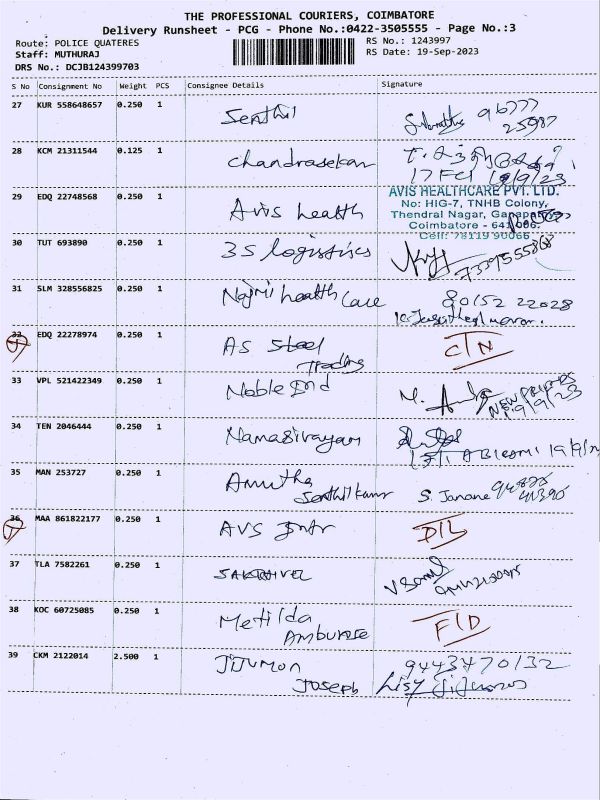 THE PROFESSIONAL COURIERS, COIMBATORE
Delivery Runsheet - PCG - Phone No.:0422-3505555 - Page No.:3
Route: POLICE QUATERES
RS No.: 1243997
Staff: MUTHURAJ
RS Date: 19-Sep-2023
DRS No.: DCJB124399703
S No Consignment No Weight PCS Consignee Details Signature
27 KUR 558648657 0.250 1 Senthil 96777
25987
28 KCM 21311544 0.125 1 Chandrasekan
19/9/23
29 EDQ 22748568 0.250 1 Avis health
AVIS HEALTHCARE PVT. LTD.
No: HIG-7, TNHB Colony,
Thendral Nagar, Ganapathy
Coimbatore - 641 006.
Cell: 78119 90066
30 TUT 693890 0.250 1 3S logistics
31 SLM 328556825 0.250 1 Najmi health Care 80152 22028
32 EDQ 22278974 0.250 1 AS Steel C/N
Trading
33 VPL 521422349 0.250 1 Noble End
19/9/23
34 TEN 2046444 0.250 1 Namasivayam
35 MAN 253727 0.250 1 Amutha
Senthilkumar S. Janane
36 MAA 861822177 0.250 1 AVS Intr D/L
37 TLA 7582261 0.250 1 SAKTHIVEL
38 KOC 60725085 0.250 1 Metilda F/D
Amburose
39 CKM 2122014 2.500 1 JIJUMON 9443470132
JOSEPH